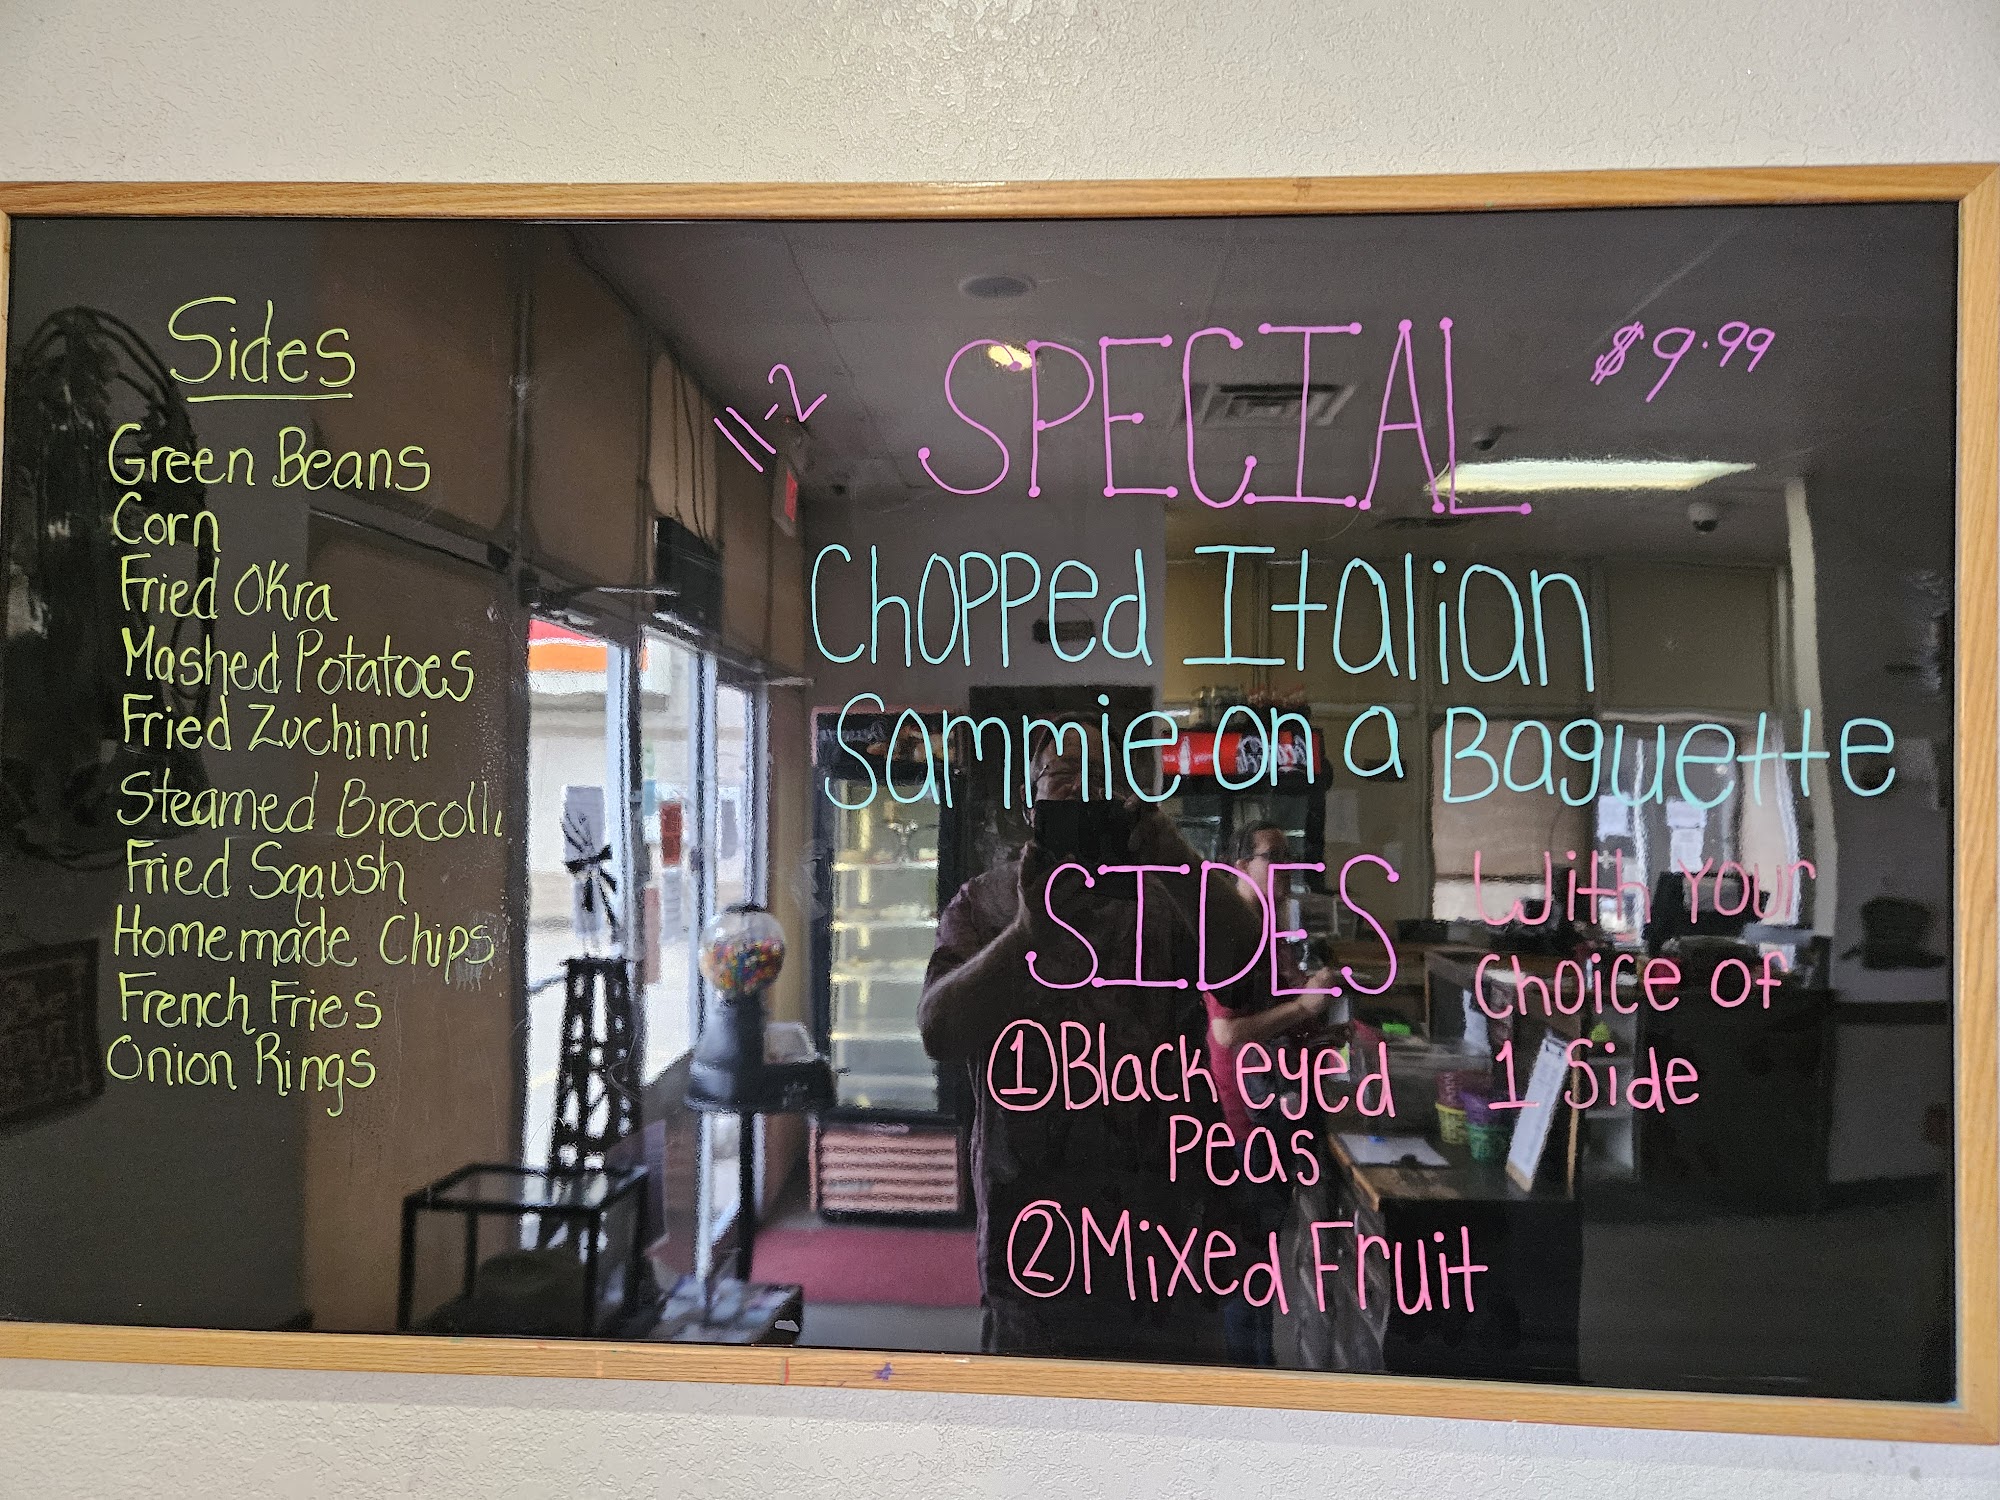 Sides
Green Beans
Corn
Fried Okra
Mashed Potatoes
Fried Zuchinni
Steamed Brocolli
Fried Sqaush
Homemade Chips
French Fries
Onion Rings
11-2
SPECIAL
$9.99
Chopped Italian
Sammie on a Baguette
SIDES
① Black eyed
Peas
② Mixed Fruit
With Your
Choice of
1 Side